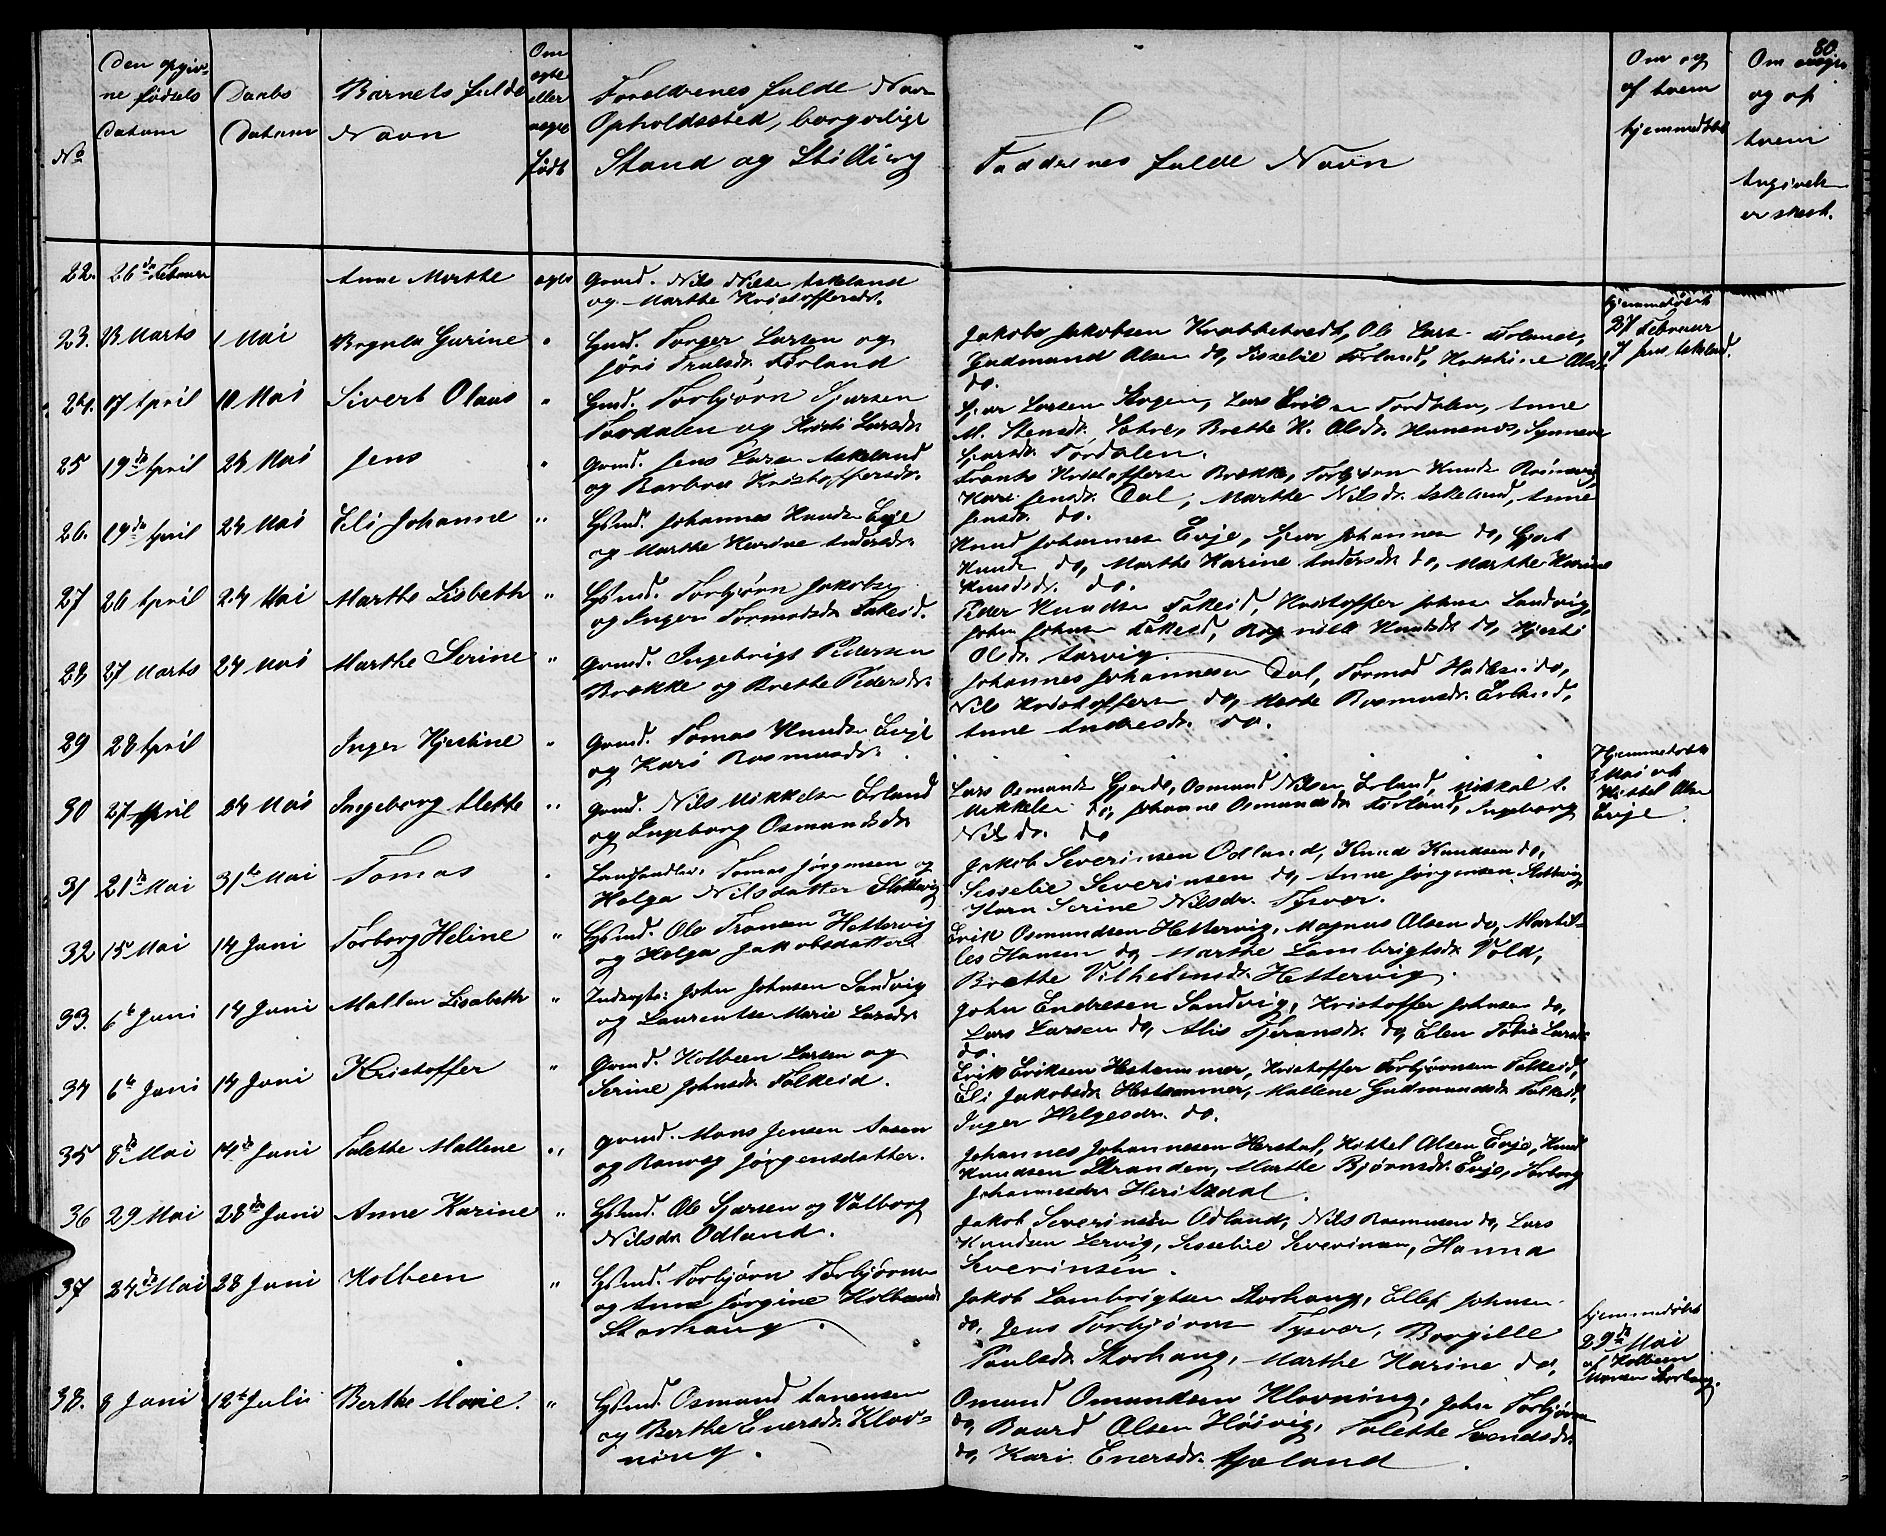 80.
No
Den opgiv-
ne fødsels
Datum
Daabs
Datum
Barnets fulde
Navn
Om
ægte
eller
uægte
født
Forældrenes fulde Navn
Opholdssted, borgerlige
Stand og Stilling
Faddrenes fulde Navn
Om og
af hvem
hjemmedøbt
Om
og af
hvem
Angivelse
er skeet.
22. 26de Februar Anne Marthe ægte Gmd. Nils Nilsen Askeland
og Marthe Kristoffersdr.
hjemmedøbt
27 Februar
af Jens Askeland.
23. 13 Marts 1 Mai Bognla Gurine " Gmd. Torger Larsen og
Jøri Trulsdr. Førland
Jakob Jakobsen Krabbetvedt, Ole Lars. Førland,
Gudmund Olsen do, Sisselie Førland, Kristine Olsdr.
do.
24. 17 April 10 Mai Sivert Olaus " Gmd. Torbjørn Sjursen
Tordalen og Kristi Larsdr.
Sjur Larsen Skogen, Lars Erik Tordalen, Anne
M. Stensdr. Sætre, Brethe K. Olsdr. Hanenos, Synneve
Sjursdr. Tordalen.
25 19de April 24 Mai Jens " Gmd. Jens Larsen Askeland
og Barbra Kristoffersdr.
Frants Kristoffersen Brække, Torbjørn Knuds.
Kari Jensdr. Dal, Marthe Nilsdr. Askeland, Anne
Jensdr. do.
26. 19de April 24 Mai Eli Johanne " Gmd. Johannes Knudsen Evje
og Marthe Karine Andersdr.
Knud Johannesen Evje, Sjur Johannesen do, Gjert
Knudsen do, Marthe Karine Andersdr. do, Marthe Karine
Knudsdr. do.
27 26 April 24 Mai Marthe Lisbeth " Gmd. Torbjørn Jakobsen
og Inger Tormodsdr. Falkeid.
Peder Knudsen Falkeid, Kristoffer Johnsen Sandvig,
John Johnsen Falkeid, Knudsdr. do, Kjersti
Olsdr. Aarvig.
28 27 Marts 24 Mai Marthe Serine " Gmd. Ingebrigt Pedersen
Brække og Brethe Pedersdr.
Johannes Johannesen Dal, Tormod Hadlesen do,
Nils Kristoffersen do, Marthe Rasmusdr. Erland,
Anne Andersdr. do.
29 28 April Inger Kjestine " Gmd. Tomas Knudsen Evje
og Kari Rasmusdr.
Hjemmedøbt
3 Mai af
Kittel Olsen
Evje.
30 27 April 24 Mai Ingeborg Mette " Gmd. Nils Mikkelsen Erland
og Ingeborg Osmundsdr.
Lars Osmundsen Gjerde, Osmund Nilsen Erland, Mikkal A.
Mikkelsen do, Johanne Osmundsdr. Førland, Ingeborg
Nilsdr. do
31 21de Mai 31te Mai Tomas " Landhandler Tomas Jørgensen og
Helga Nilsdatter Slottevig
Jakob Severinsen Odland, Knud Knudsen do,
Sisselie Severinsen do, Anne Jørgensen Slottevig,
Karn Serine Nilsdr. Tysvær.
32 15 Mai 14 Juni Torborg Heline " Gmd. Ole Tronsen Hettervig
og Helga Jakobsdatter
Erik Osmundsen Hettervig, Magnus Olsen do, Martil-
les Hansen do, Marthe Lambrigtsdr. Vold,
Brethe Vilhelmsdr. Hettervig.
33. 6te Juni 14 Juni Mallen Lisabeth " Inderste John Johnsen Sandvig
og Laurentse Marie Larsdr.
John Endresen Sandvig, Kristoffer Johnsen do,
Lars Larsen do, Alis Tjeransdr. do, Elen Tobia Larsdr.
do.
34 6te Juni 14 Juni Kristoffer " Gmd. Kolbeen Larsen og
Serine Johnsdr. Falkeid.
Erik Eriksen Hestammer, Kristoffer Torbjørnsen Falkeid,
Eli Jakobsdr. Hestammer, Mallene Gudmundsdr. Falkeid,
Inger Helgesdr. do.
35 8de Mai 14de Juni Talette Mallene " Gmd. Mons Jensen Aasen
og Ranveg Jørgensdatter.
Johannes Johannesen Herstal, Kittel Olsen Evje, Knud
Knudsen Stranden, Marthe Bjørnsdr. Evje, Torborg
Johannesdr. Heritzdal.
36 29 Mai 28de Juni Anne Karine " Gmd. Ole Sjursen og Valborg
Nilsdr. Odland.
Jakob Severinsen Odland, Nils Rasmusen do, Lars
Knudsen Lervig, Sisselie Severinsen, Hanna
Severinsen.
37 24de Mai 28 Juni Kolbeen " Gmd. Torbjørn Torbjørnsen
og Anne Jørgine Kolbeensdr.
Storhaug.
Jakob Lambrigtsen Storhaug, Ellef Johnsen
do, Jens Torbjørnsen Tysvær, Borgille
Paulsdr. Storhaug, Marthe Karine do,
hjemmedøbt
29de Mai
af Kolbeen
Monsen Storhaug.
38. 8 Juni 12te Julii Berthe Marie. " Gmd. Osmund Aanensen
og Berthe Enersdr. Klov-
ning.
Omund Omundsen Klovning, John Torbjørnsen
do, Baard Olsen Høivig, Talette Svendsdr.
do, Kari Enersdr. Apeland.